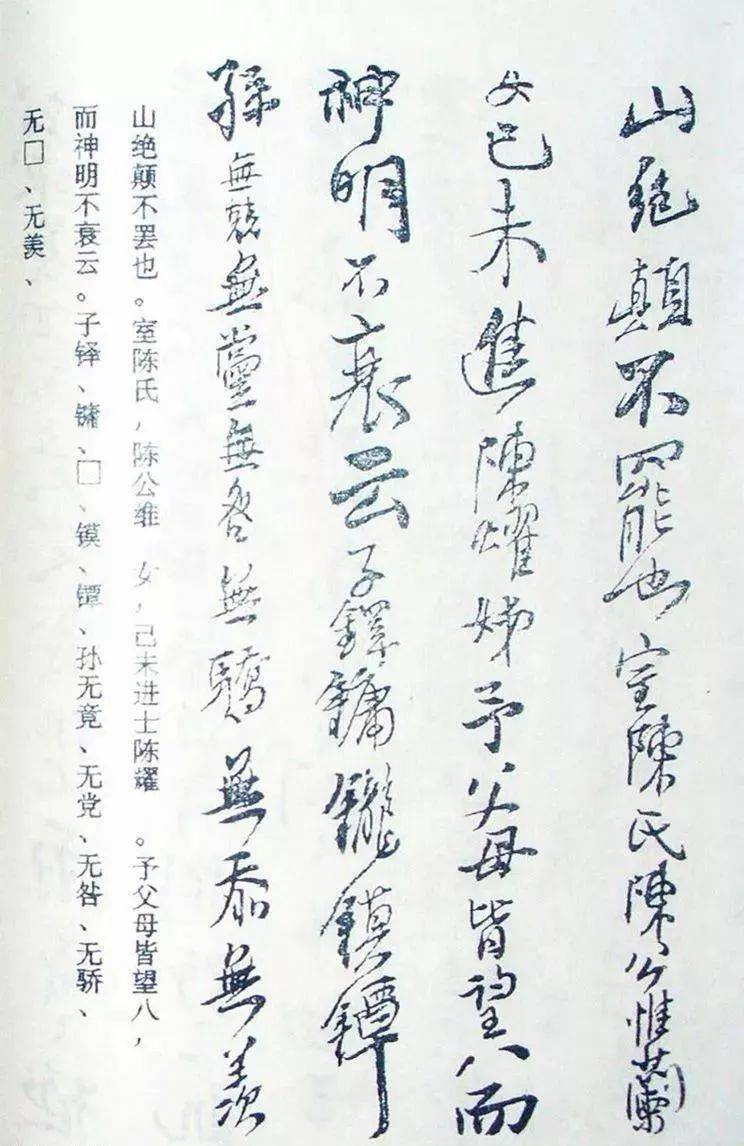 山絕顛不罷也室陳氏陳公惟蘭
女己未進陳燿姊予父母皆望八而
神明不衰云子鐸鏞鑨鏌鐔
孫無兢無黨無咎無驕無忝無羨
山绝颠不罢也。室陈氏，陈公维　女，己未进士陈耀　。予父母皆望八，
而神明不衰云。子铎、镛、□、镆、镡、孙无竟、无党、无咎、无骄、
无□、无羡、